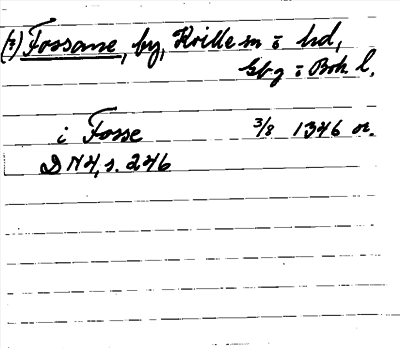 (?) Fossane, by, Krille sn o hd,
Gbg o Boh. l.
i Fosse 3/8 1346 or.
DN 4, s. 246